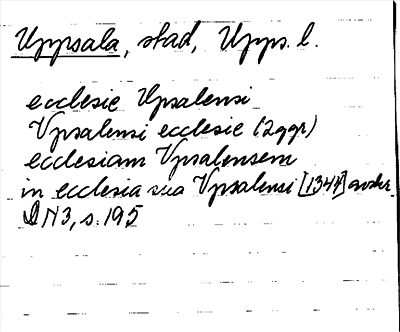 Uppsala, stad, Upps. l.
ecclesie Upsalensi
Vpsalensi ecclesie (2ggr)
ecclesiam Vpsalensem
in ecclesia sua Vpsalensi [1344] avskr.
DN3, s. 195